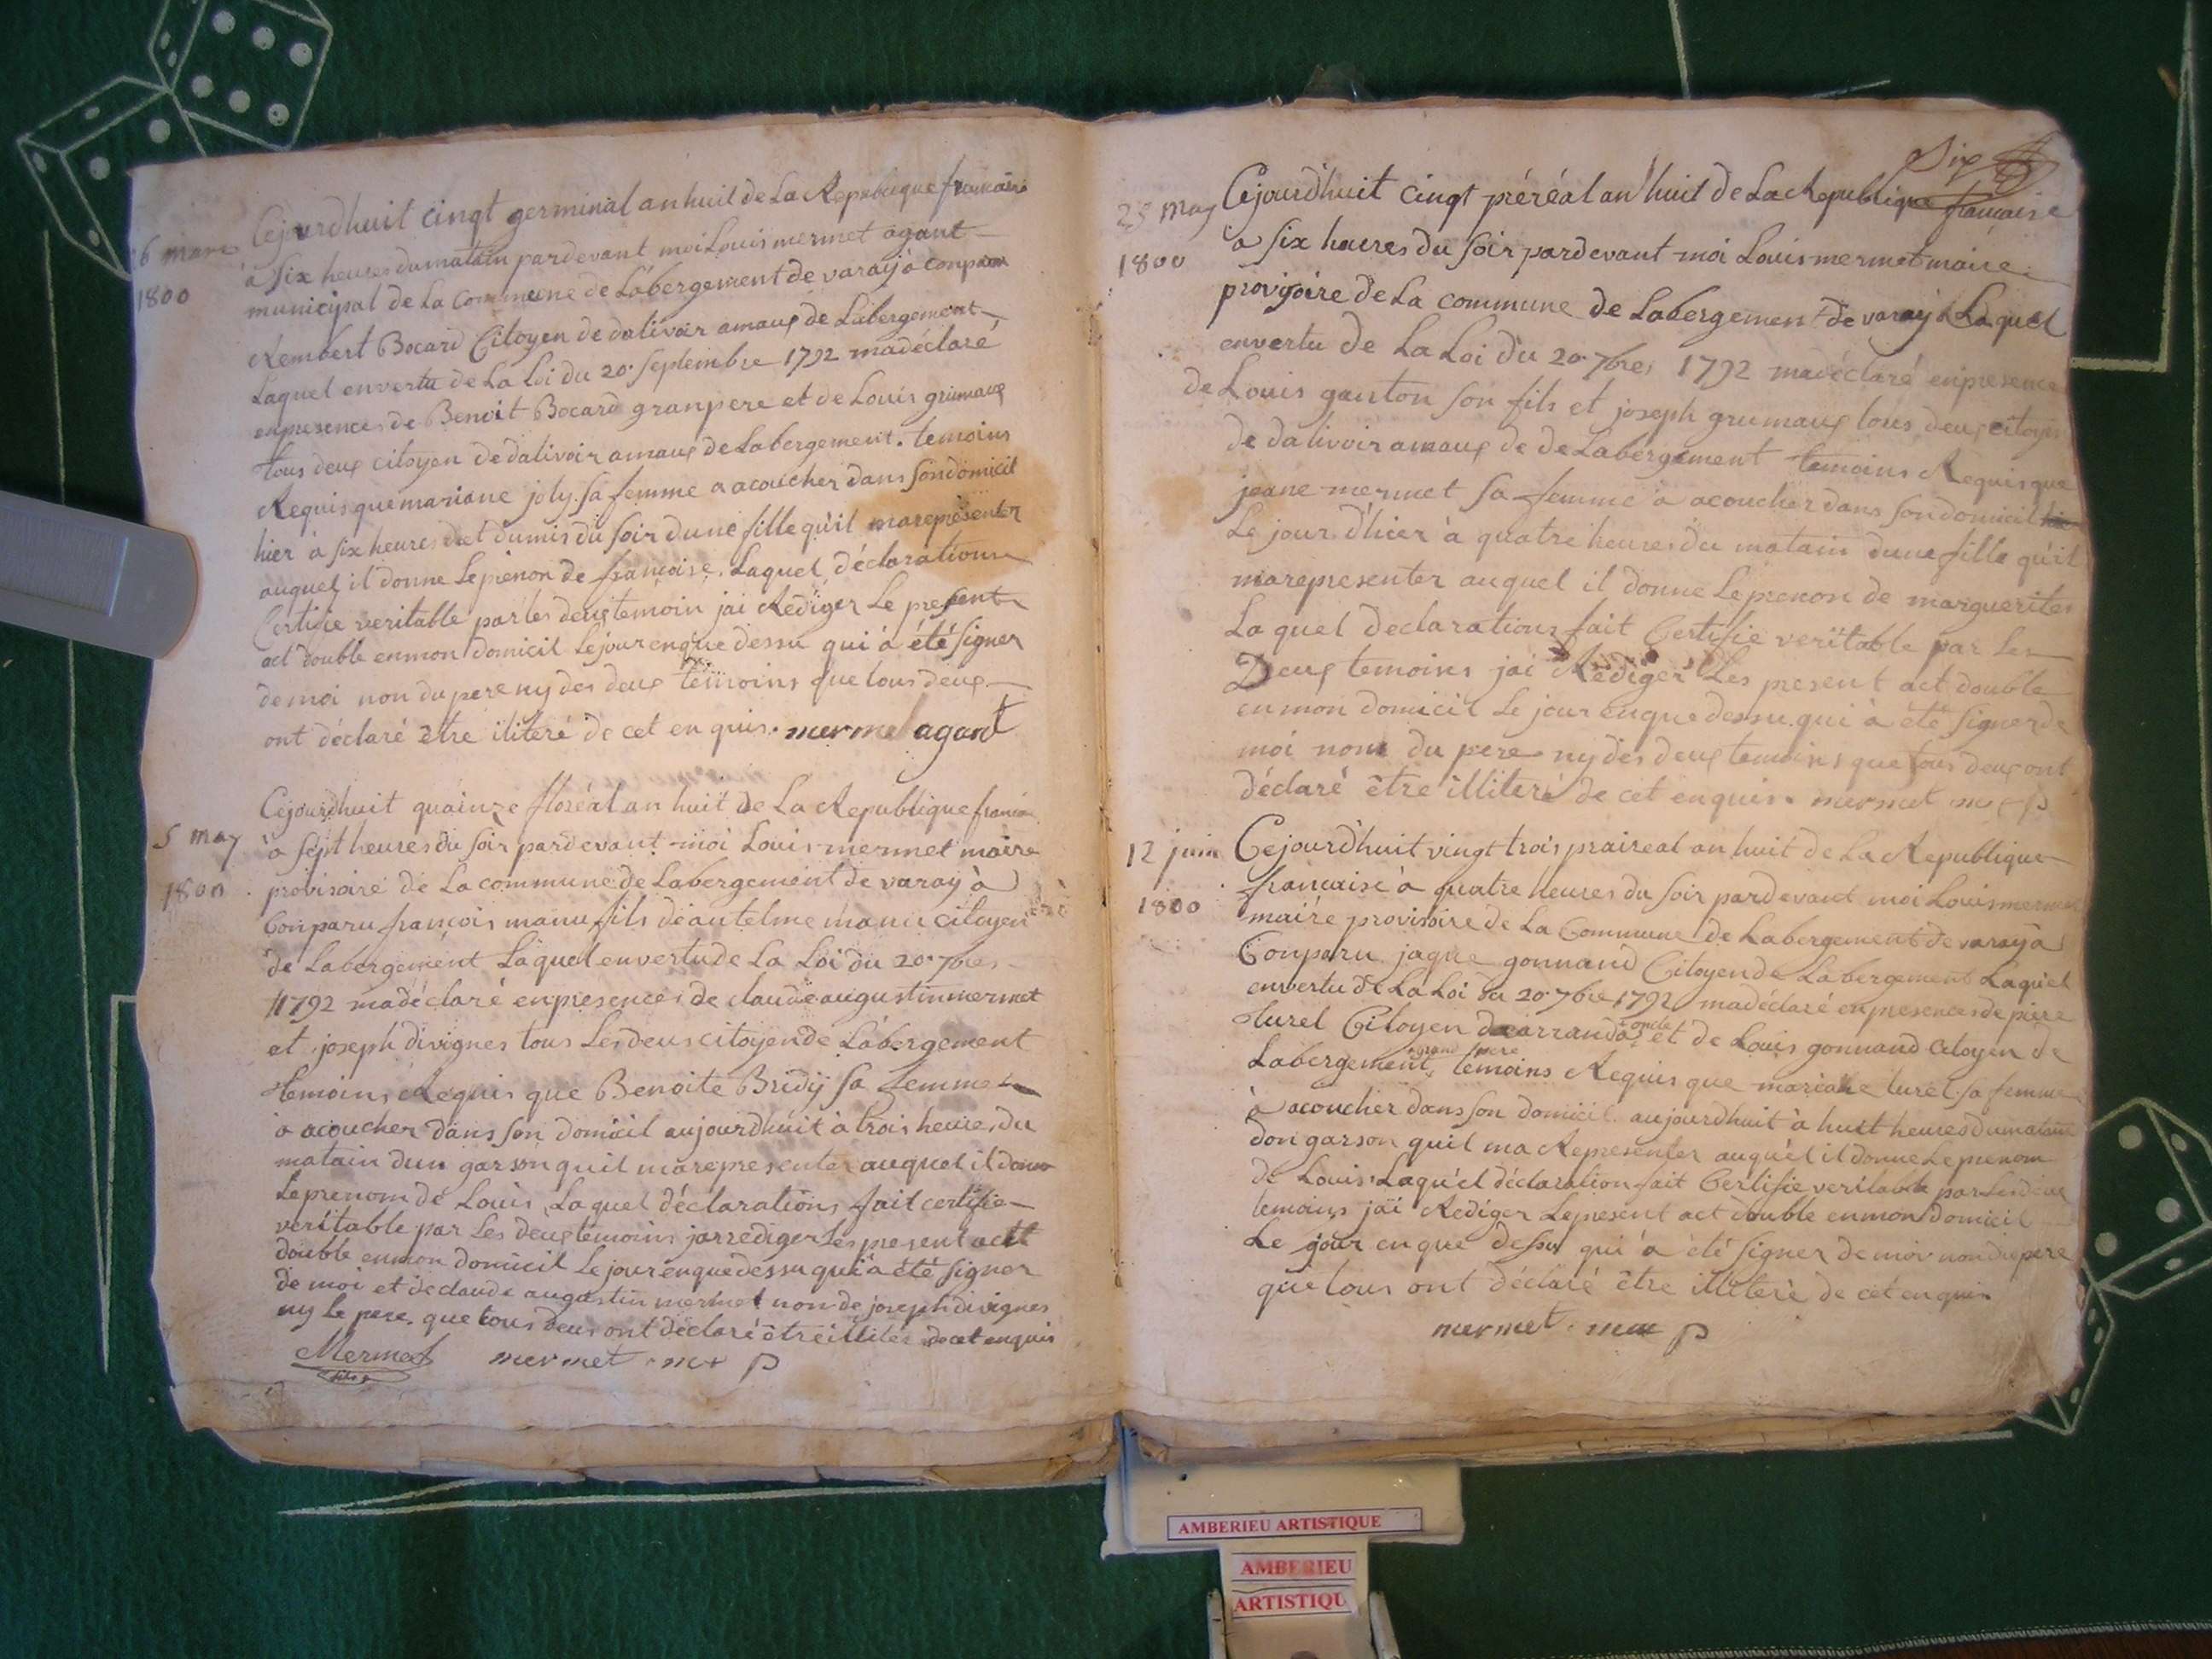 6 mars
1800
Cejourdhuit cinqt germinal an huil de La Republique francaise
à six heures du matain pardevant moi Louis mermet agant
municipal de La Commeune de Labergement de varay à conparu
Rembert Bocard Citoyen de dalivoir amaux de Labergement
Laquel envertu de La Loi du 20 septembre 1792 madéclaré
enpresences de Benoit Bocard granpere et de Louis grumaux
tous deux citoyen de dalivoir amaux de Labergement. temoins
Requis que mariane joly sa femme a acoucher dans son domicil
hier à six heures et dumis du soir dune fille qu'il marepresenter
auquel il donne Leprenon de francoise. Laquel déclarations
Certifie veritable par les deux temoin jai Rediger Le present
act double enmon domicil Lejour enque dessu qui à été signer
de moi non du pere ny des deux temoins que tous deux
ont déclaré être iliteré de cet en quis. mermet agant
5 may
1800
Cejourdhuit quainze floréal an huit de La Republique francai
à sept heures du soir pardevant moi Louis mermet maire
provisoire de La commune de Labergement de varay à
Conparu francois manu fils deantelme manu citoyen
de Labergement Laquel envertu de La Loi du 20 7bres
1792 madéclaré enpresences de claude augustin mermet
et joseph divignes tous Les deus citoyen de Labergement
temoins Requis que Benoite Bridy sa femme
à acoucher dans son domicil aujourdhuit à trois heures du
matain dun garson quil marepresenter auquel il donne
Leprenom de Louis Laquel déclarations fait certifie
veritable par Les deux temoins jairediger Les present actt
double enmon domicil Lejour enque dessu qui à été signer
de moi et de claude augustin mermet non de joseph divignes
ny Le pere. que tous deus ont déclaré être illiteré de cet enquis
Mermet mermet mr p
fils
Six
25 may
1800
Cejourdhuit cinqt préréal an huit de La Republique francaise
à six heures du soir pardevant moi Louis mermet maire
provisoire de La commune de Labergement de varay à Laquel
envertu de La Loi du 20 7bres 1792 madéclaré enpresence
de Louis ganton son fils et joseph grumaux tous deux citoyen
de dalivoir amaux de de Labergement temoins Requis que
jeane mermet sa femme à acoucher dans son domicil
Le jour d'hier à quatre heures du matain dune fille qu'il
marepresenter auquel il donne Leprenon de marguerites
Laquel declarations fait Certifie veritable par Les
Deux temoins jai Rediger Les present act double
en mon domicil Le jour enque dessu qui à été signer de
moi nom du pere ny des deux temoins que tous deux ont
déclaré être illiteré de cet enquis. mermet mr p
12 juin
1800
Cejourdhuit vingt trois praireal an huit de La Republique
francaise à quatre heures du soir pardevant moi Louis mermet
maire provisoire de La Commune de Labergement de varay à
Conparu jaque gonnand Citoyen de Labergement Laquel
envertu de La Loi du 20 7bre 1792 madéclaré enpresences de piere
turel Citoyen de arranda oncle et de Louis gonnand citoyen de
Labergement grand pere temoins Requis que mariane turel sa femme
à acoucher dans son domicil aujourdhuit à huit heures du matain
don garson quil ma Representer auquel il donne Leprenom
de Louis Laquel déclaration fait Certifie veritable par Les deux
temoins jai Rediger Lepresent act double enmon domicil
Le jour en que dessu qui à été signer de moi non du pere
que tous ont déclaré être illiteré de cet enquis
mermet mr p
AMBERIEU ARTISTIQUE
AMBERIEU
ARTISTIQU